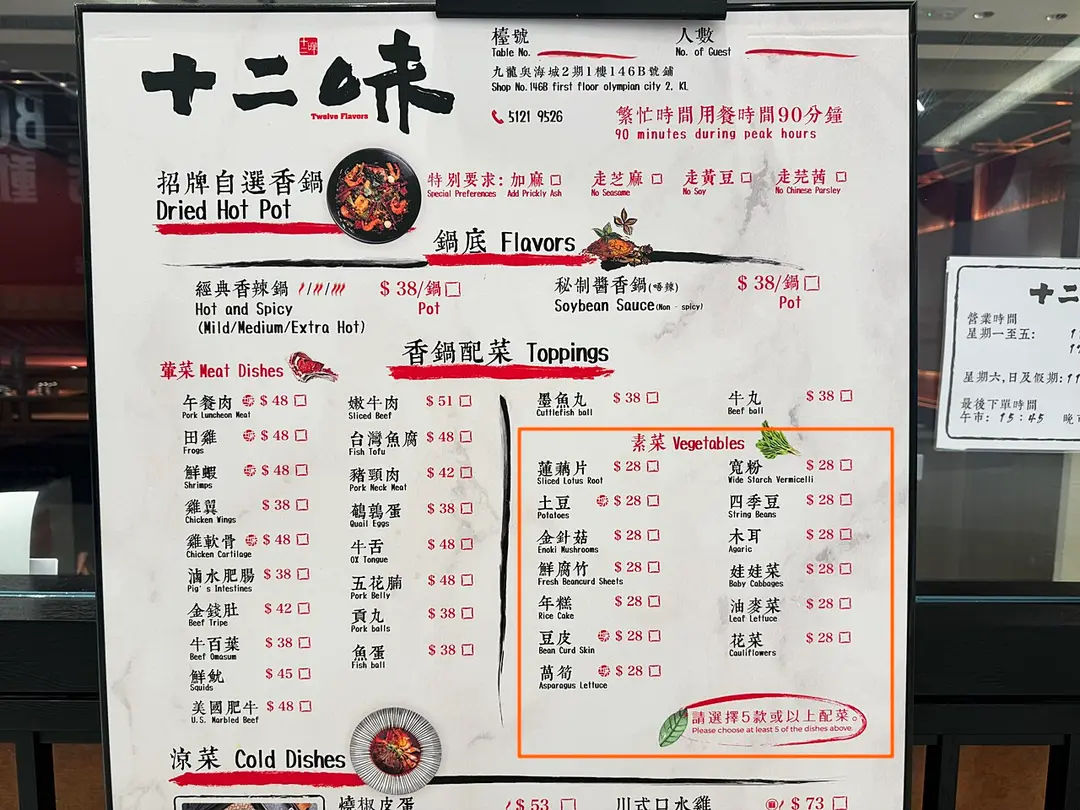 十二味
十二味
Twelve Flavors
檯號
Table No.
人數
No. of Guest
九龍奧海城2期1樓146B號鋪
Shop No.146B first floor olympian city 2, KL
5121 9526
繁忙時間用餐時間90分鐘
90 minutes during peak hours
招牌自選香鍋
Dried Hot Pot
特別要求: 加麻 走芝麻 走黃豆 走芫茜
Special Preferences Add Prickly Ash No Seasame No Soy No Chinese Parsley
鍋底 Flavors
經典香辣鍋 $ 38/鍋
Hot and Spicy Pot
(Mild/Medium/Extra Hot)
秘制醬香鍋(唔辣) $ 38/鍋
Soybean Sauce(Non - spicy) Pot
香鍋配菜 Toppings
葷菜 Meat Dishes
午餐肉 $ 48
Pork Luncheon Meat
田雞 $ 48
Frogs
鮮蝦 $ 48
Shrimps
雞翼 $ 38
Chicken Wings
雞軟骨 $ 48
Chicken Cartilage
滷水肥腸 $ 38
Pig's Intestines
金錢肚 $ 42
Beef Tripe
牛百葉 $ 38
Beef Omasum
鮮魷 $ 45
Squids
美國肥牛 $ 48
U.S. Marbled Beef
嫩牛肉 $ 51
Sliced Beef
台灣魚腐 $ 48
Fish Tofu
豬頸肉 $ 42
Pork Neck Meat
鵪鶉蛋 $ 38
Quail Eggs
牛舌 $ 48
OX Tongue
五花腩 $ 48
Pork Belly
貢丸 $ 38
Pork balls
魚蛋 $ 38
Fish ball
墨魚丸 $ 38
Cuttlefish ball
牛丸 $ 38
Beef ball
素菜 Vegetables
蓮藕片 $ 28
Sliced Lotus Root
土豆 $ 28
Potatoes
金針菇 $ 28
Enoki Mushrooms
鮮腐竹 $ 28
Fresh Beancurd Sheets
年糕 $ 28
Rice Cake
豆皮 $ 28
Bean Curd Skin
萵筍 $ 28
Asparagus Lettuce
寬粉 $ 28
Wide Starch Vermicelli
四季豆 $ 28
String Beans
木耳 $ 28
Agaric
娃娃菜 $ 28
Baby Cabbages
油麥菜 $ 28
Leaf Lettuce
花菜 $ 28
Cauliflowers
請選擇5款或以上配菜。
Please choose at least 5 of the dishes above.
涼菜 Cold Dishes
燒椒皮蛋 $ 53
川式口水雞 $ 73
十二
營業時間
星期一至五:
星期六,日及假期:
最後下單時間
午市: 15:45